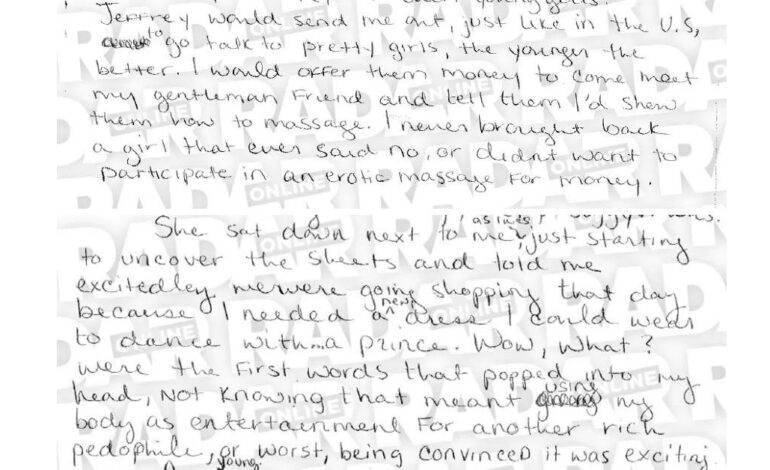 Jeffrey would send me out, just like in the U.S,
to go talk to pretty girls, the younger the
better. I would offer them money to come meet
my gentleman friend and tell them I'd show
them how to massage. I never brought back
a girl that ever said no, or didn't want to
participate in an erotic massage for money.
She sat down next to me, just starting
to uncover the sheets and told me
excitedley we were going shopping that day
because I needed a new dress I could wear
to dance with a prince. Wow, What?
were the first words that popped into my
head, NOT Knowing that meant using my
body as entertainment For another rich
pedophile, or worst, being convinced it was exciting
young
RADAR
ONLINE